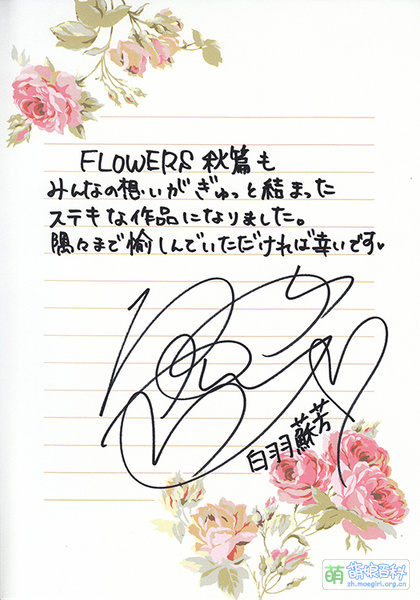 FLOWERS 秋篇も
みんなの想いがぎゅっと結まった
ステキな作品になりました。
隅々まで愉しんでいただければ幸いです♥
白羽蘇芳
萌 萌娘百科
zh.moegirl.org.cn